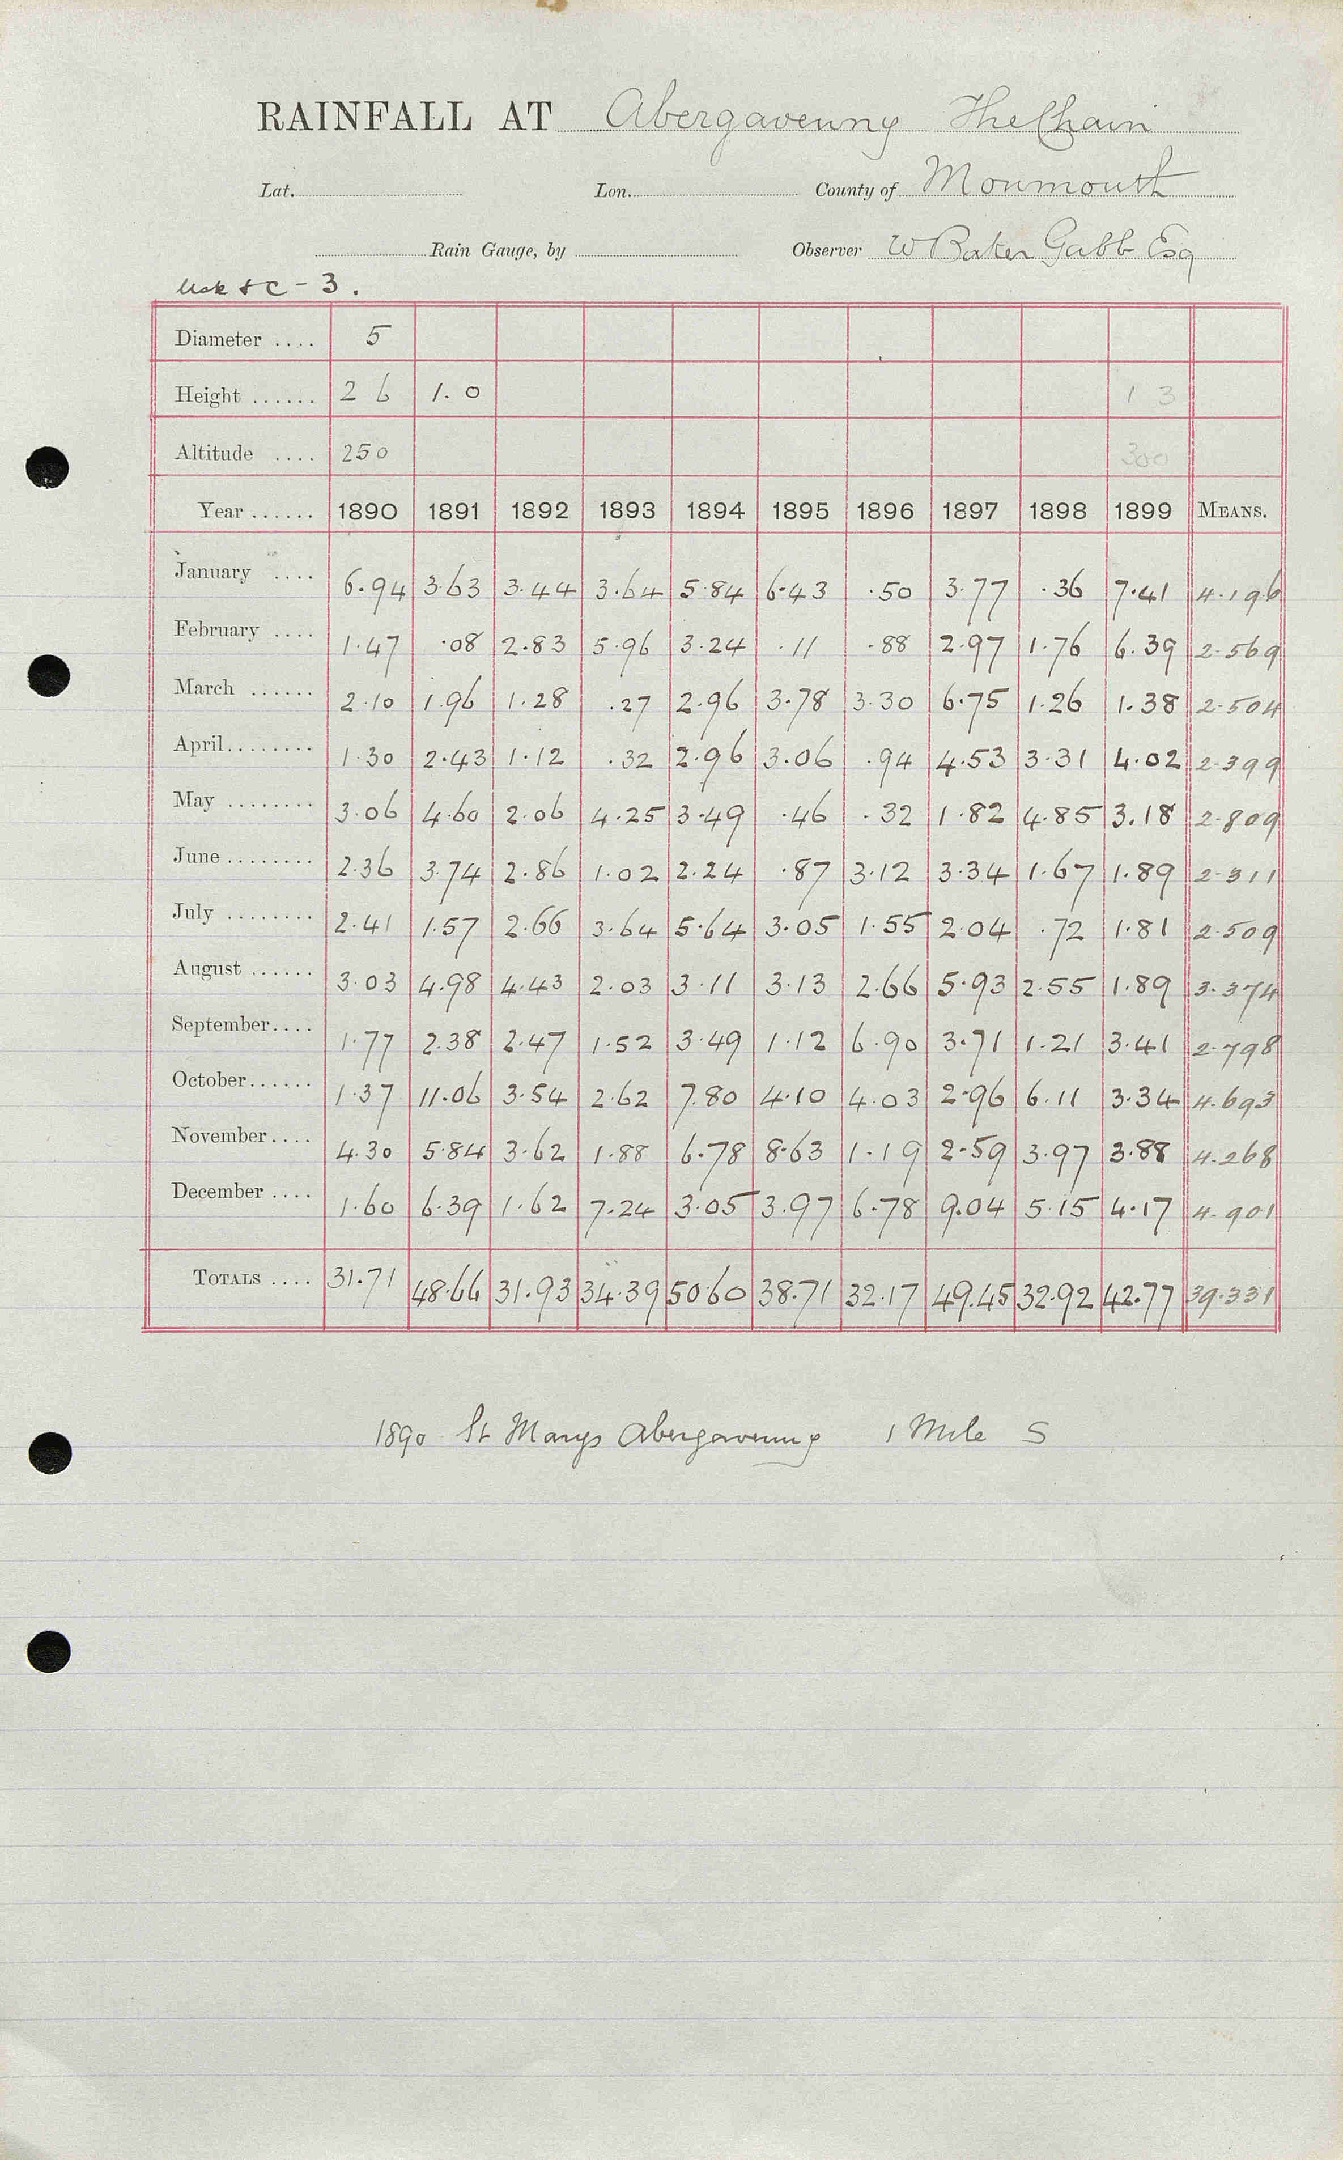 RAINFALL AT Abergavenny The Chain
Lat. Lon. County of Monmouth
Rain Gauge, by Observer W Baker Gabb Esq
Usk & C - 3.
Diameter .... 5
Height ...... 2 6 1.0 1 3
Altitude .... 250 300
Year ...... 1890 1891 1892 1893 1894 1895 1896 1897 1898 1899 MEANS.
January .... 6.94 3.63 3.44 3.64 5.84 6.43 .50 3.77 .36 7.41 4.196
February .... 1.47 .08 2.83 5.96 3.24 .11 .88 2.97 1.76 6.39 2.569
March ...... 2.10 1.96 1.28 .27 2.96 3.78 3.30 6.75 1.26 1.38 2.504
April ........ 1.30 2.43 1.12 .32 2.96 3.06 .94 4.53 3.31 4.02 2.399
May ........ 3.06 4.60 2.06 4.25 3.49 .46 .32 1.82 4.85 3.18 2.809
June ........ 2.36 3.74 2.86 1.02 2.24 .87 3.12 3.34 1.67 1.89 2.311
July ........ 2.41 1.57 2.66 3.64 5.64 3.05 1.55 2.04 .72 1.81 2.509
August ...... 3.03 4.98 4.43 2.03 3.11 3.13 2.66 5.93 2.55 1.89 3.374
September .... 1.77 2.38 2.47 1.52 3.49 1.12 6.90 3.71 1.21 3.41 2.798
October ...... 1.37 11.06 3.54 2.62 7.80 4.10 4.03 2.96 6.11 3.34 4.693
November .... 4.30 5.84 3.62 1.88 6.78 8.63 1.19 2.59 3.97 3.88 4.268
December .... 1.60 6.39 1.62 7.24 3.05 3.97 6.78 9.04 5.15 4.17 4.901
TOTALS .... 31.71 48.66 31.93 34.39 50.60 38.71 32.17 49.45 32.92 42.77 39.331
1890 St Marys Abergavenny 1 Mile S